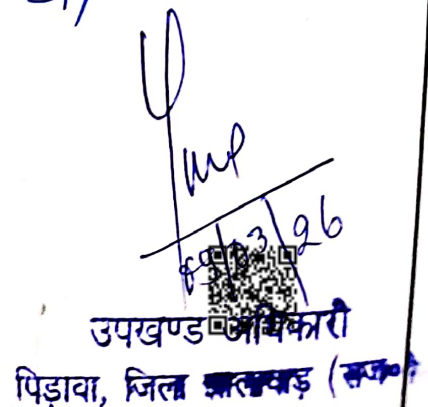 09/03/26
उपखण्ड अधिकारी
पिड़ावा, जिला झालावाड़ (राज०)